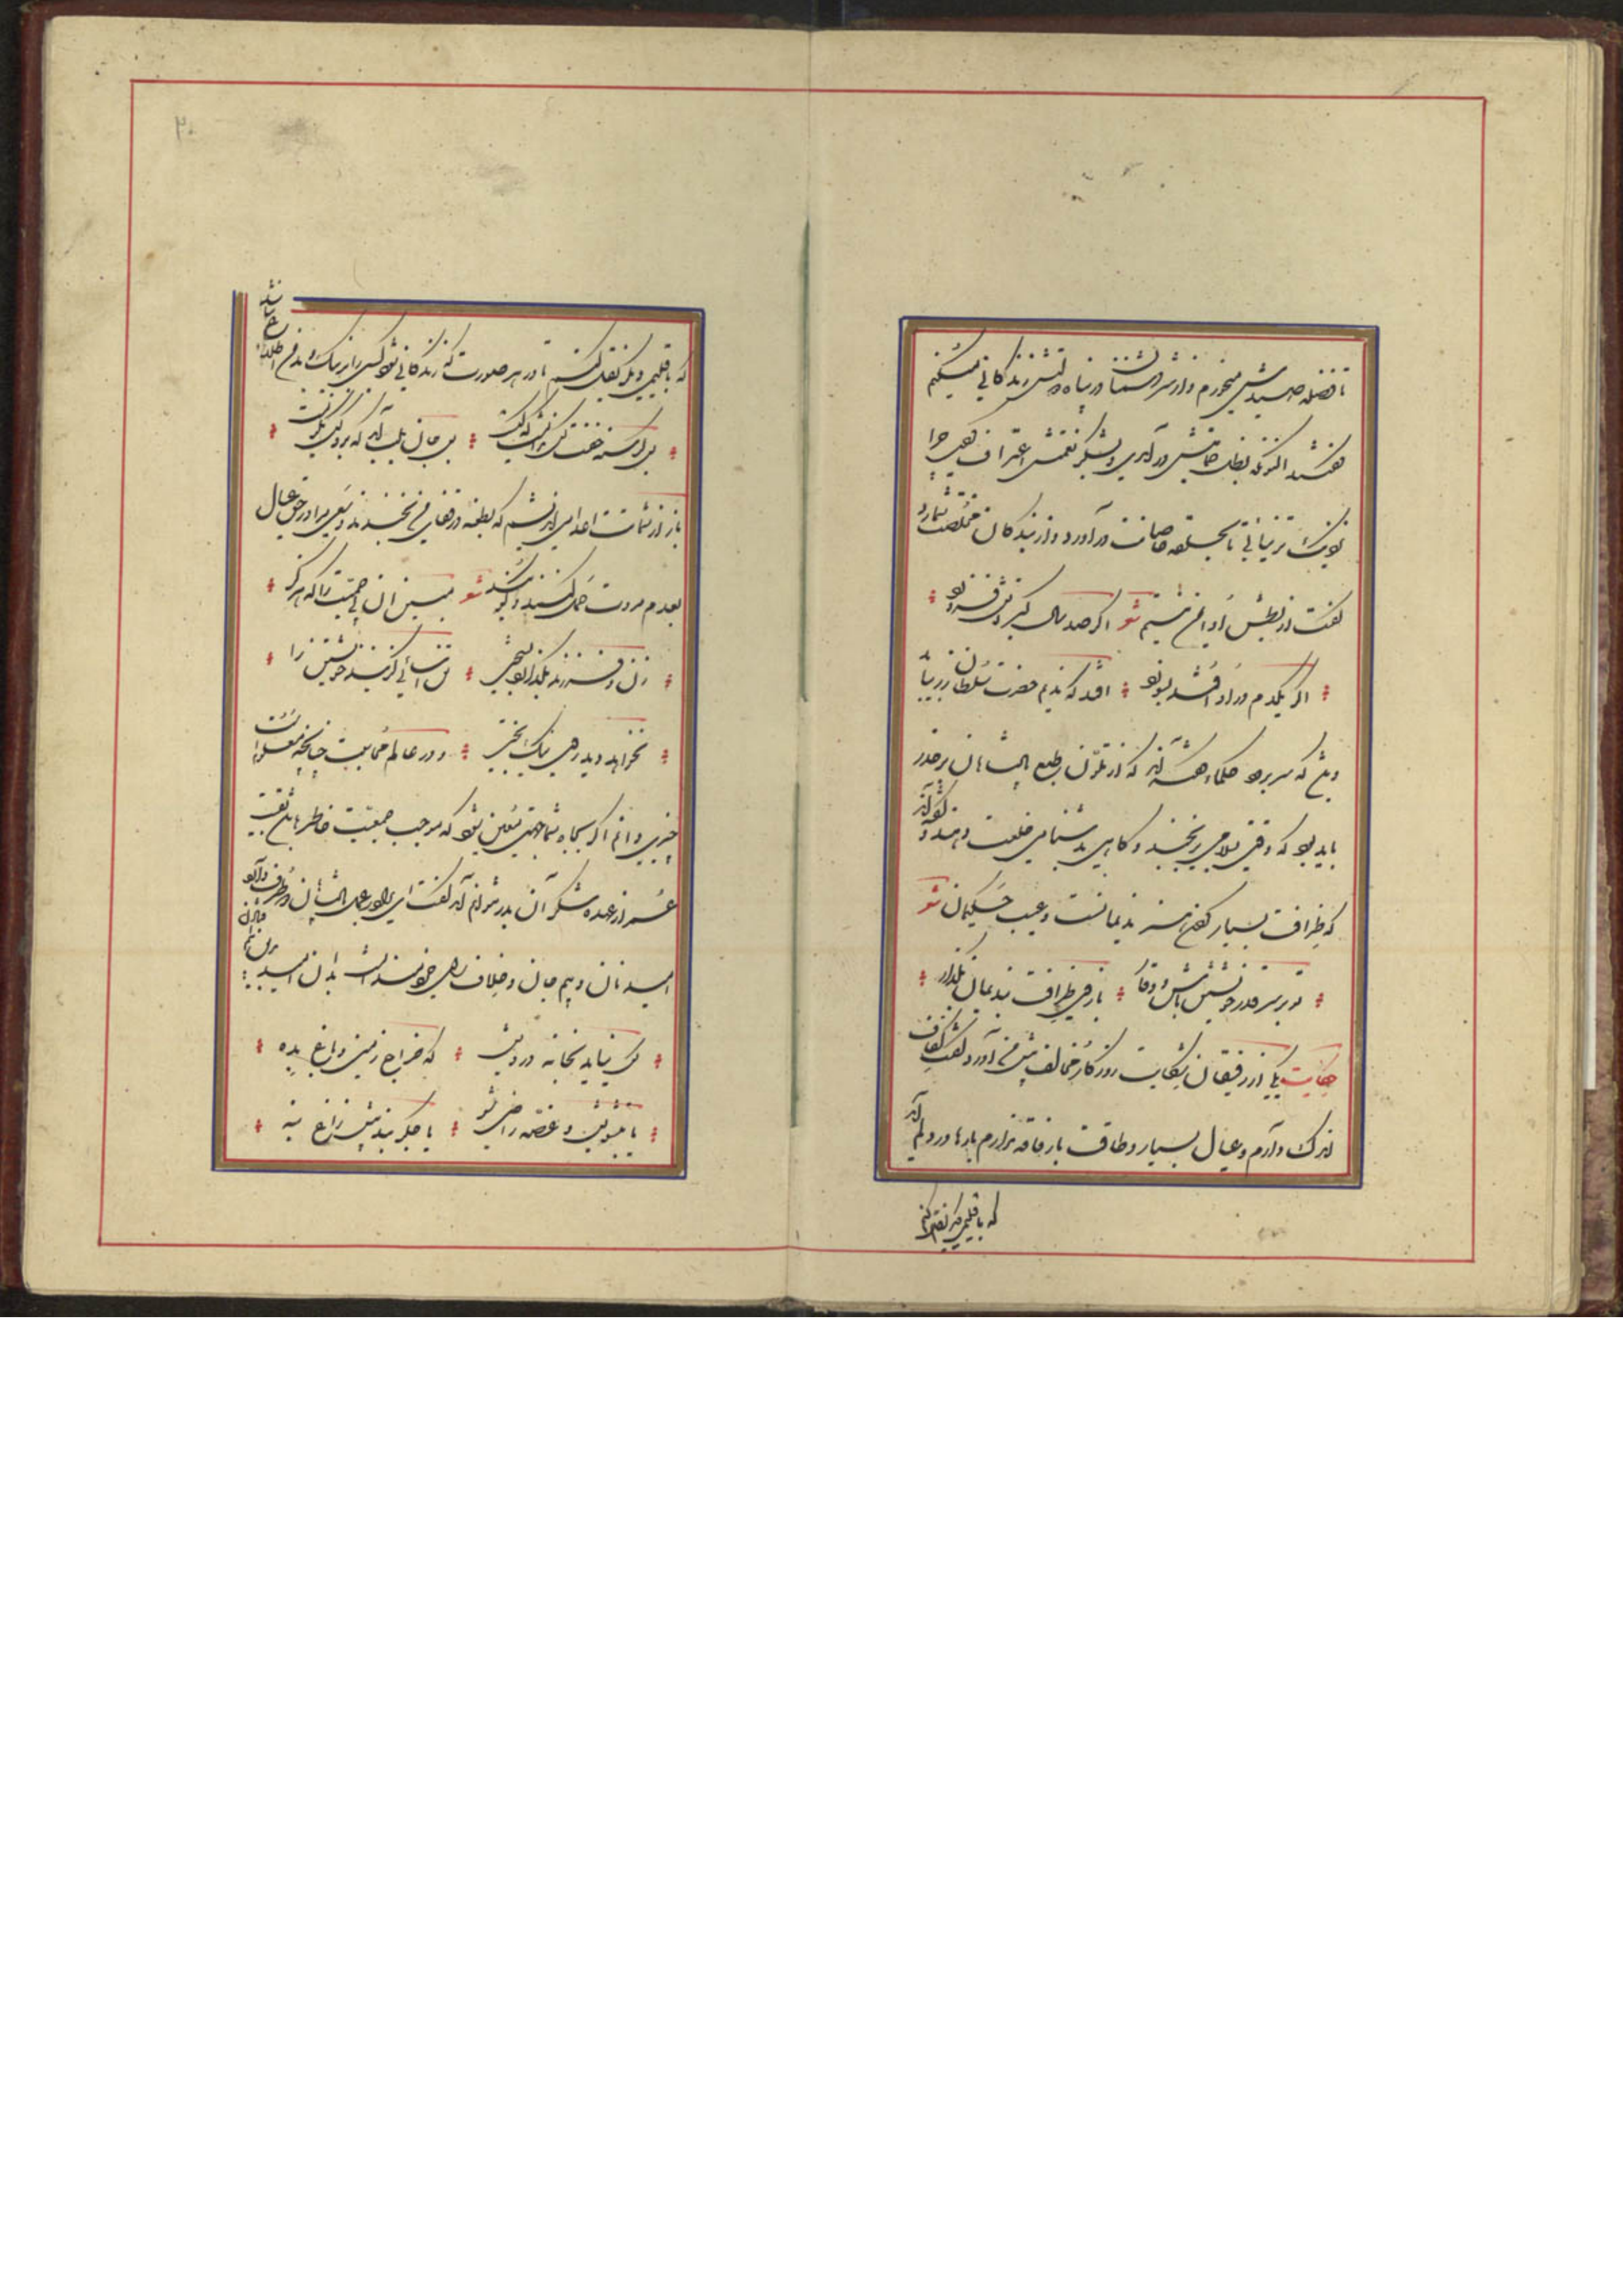 تا فضله صیدش میخورم و از شر دشمنان در پناه صولتش زندگانی میکنم
گفتند اکنون که بظل حمایتش در آمدی و بشکر نعمتش اعتراف کردی چرا
نزدیکتر نیائی تا بحلقه خاصانت در آورد و از بندگان مخلصت شمارد
گفت از بطش او ایمن نیستم شعر اگر صد سال گبر آتش فروزد
اگر یکدم در او افتد بسوزد افتد که ندیم حضرت سلطان زر بیابد
و باشد که سر برود حکما گفته اند که از تلون طبع پادشاهان بر حذر
باید بود که وقتی بسلامی برنجند و گاهی بدشنامی خلعت دهند و گفته اند
که ظرافت بسیار کردن هنر ندیمانست و عیب حکیمان شعر
تو بر سر قدر خویشتن باش و وقار بازی و ظرافت بندیمان بگذار
حکایت یکی از رفیقان شکایت روزگار مخالف پیش من آورد و گفت کفاف
اندک دارم و عیال بسیار و طاقت بار فاقه ندارم بارها در دلم آمد
که باقلیمی دیگر نقل کنم
۲۰
که باقلیمی دیگر نقل کنم تا در هر صورت که زندگانی شود کسی را بر نیک و بد من اطلاع نباشد
بس گرسنه خفت و کس ندانست که کیست بس جان بلب آمد که برو کس نگریست
باز از شماتت اعدا می اندیشم که بطعنه در قفای من بخندند و سعی مرا در حق عیال
بعدم مروت حمل کنند و گویند شعر ببین آن بی حمیت را که هرگز
نخواهد دید روی نیک بختی تن آسانی گزیند خویشتن را
زن و فرزند بگذارد بسختی و در علم محاسبت چنانچه معلومست
چیزی دانم اگر بجاه شما جهتی معین شود که موجب جمعیت خاطر باشد بقیت
عمر از عهده شکر آن بدر نتوانم آمد گفت ای برادر عمل پادشاهان دو طرف دارد
امید نان و بیم جان و خلاف رای خردمندانست بدان امید در این بیم افتادن
کس نیاید بخانه درویش که خراج زمین و باغ بده
یا بتشویش و غصه راضی شو یا جگر بند پیش زاغ بنه